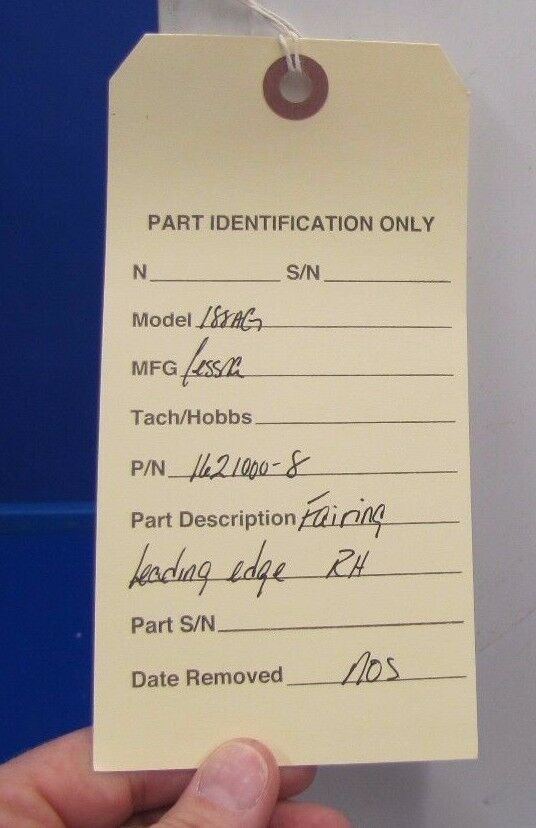 PART IDENTIFICATION ONLY
N S/N
Model 188AG
MFG Cessna
Tach/Hobbs
P/N 1621000-8
Part Description Fairing
Leading edge RH
Part S/N
Date Removed NOS